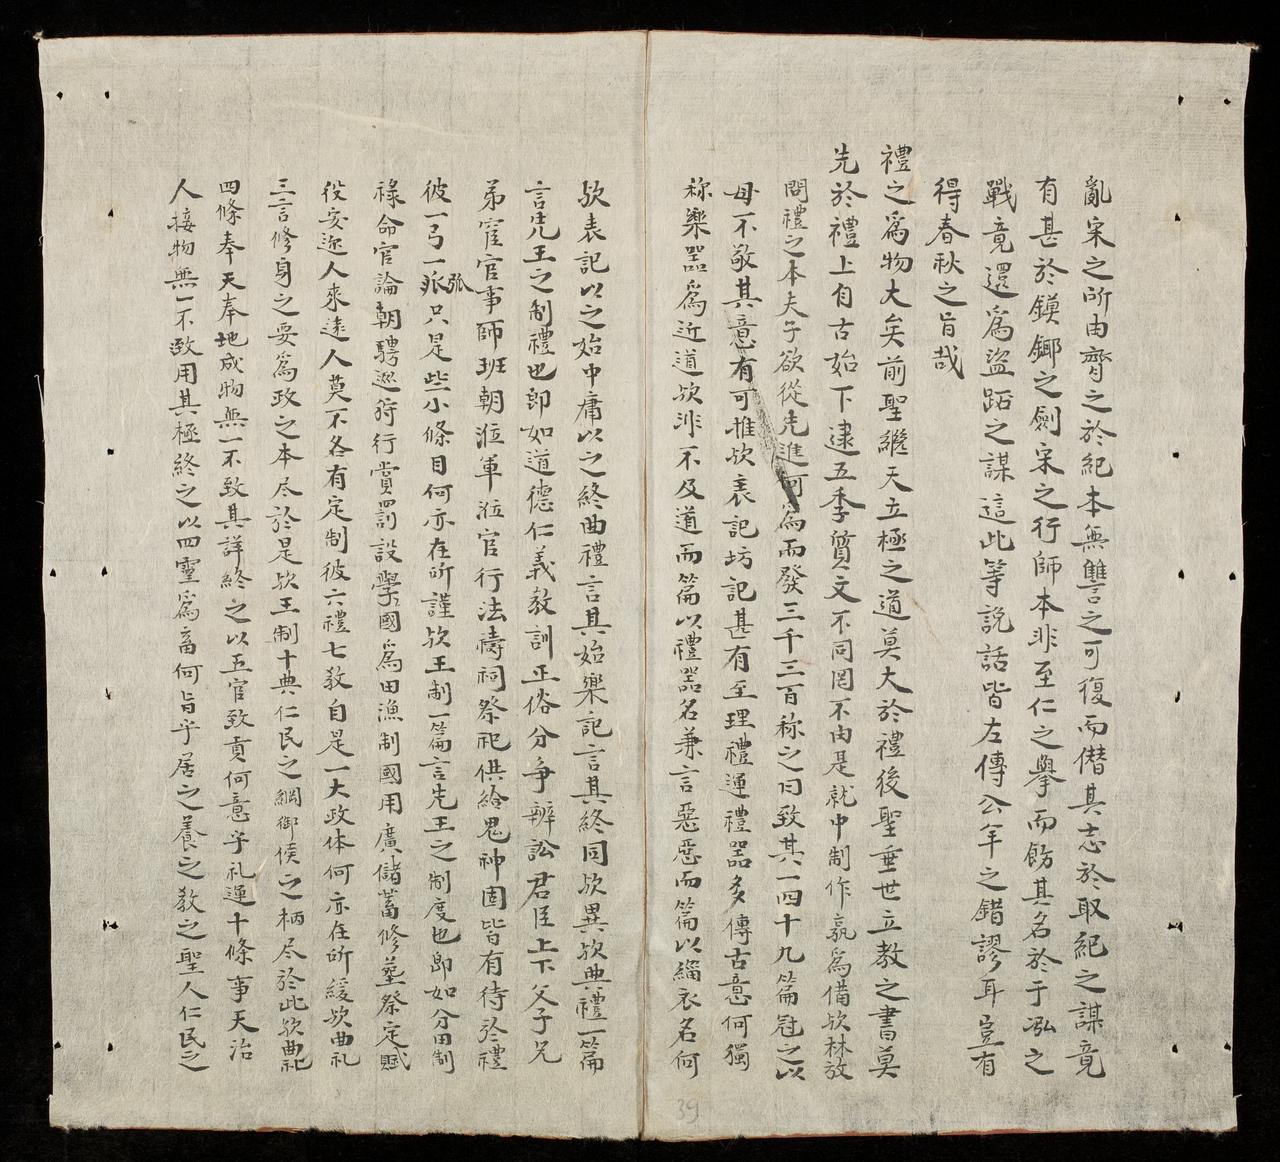 亂宋之所由齊之於紀本無讐言之可復而僭其志於取紀之謀竟
有甚於鏌鎁之劍宋之行師本非至仁之擧而飭其名於于泓之
戰竟還爲盜跖之謀這此等說話皆左傳公羊之錯謬耳豈有
得春秋之旨哉
禮之爲物大矣前聖繼天立極之道莫大於禮後聖垂世立教之書莫
先於禮上自古始下逮五季質文不同罔不由是就中制作孰爲備欤林放
問禮之本夫子欲從先進何爲而發三千三百称之曰致其一四十九篇冠之以
毋不敬其意有可推欤表記坊記甚有至理禮運禮器多傳古意何獨
称樂器爲近道欤非不及道而篇以禮器名兼言惡惡而篇以緇衣名何
欤表記以之始中庸以之終曲禮言其始樂記言其終同欤異欤典禮一篇
言先王之制禮也即如道德仁義教訓正俗分争辨訟君臣上下父子兄
弟宦官事師班朝涖軍涖官行法禱祠祭祀供給鬼神固皆有待於禮
彼一弓一張只是些小條目何亦在所謹欤王制一篇言先王之制度也即如分田制
祿命官論朝聘巡狩行賞罰設學國爲田漁制國用廣儲蓄修墓祭定賦
役安迩人來遠人莫不各有定制彼六禮七教自是一大政体何亦在所緩欤曲礼
三言修身之要爲政之本尽於是欤王制十典仁民之綱御侯之柄尽於此欤典礼
四條奉天奉地成物無一不致其詳終之以五官致貢何意乎礼運十條事天治
人接物無一不致用其極終之以四靈爲畜何旨乎居之養之教之聖人仁民之
39